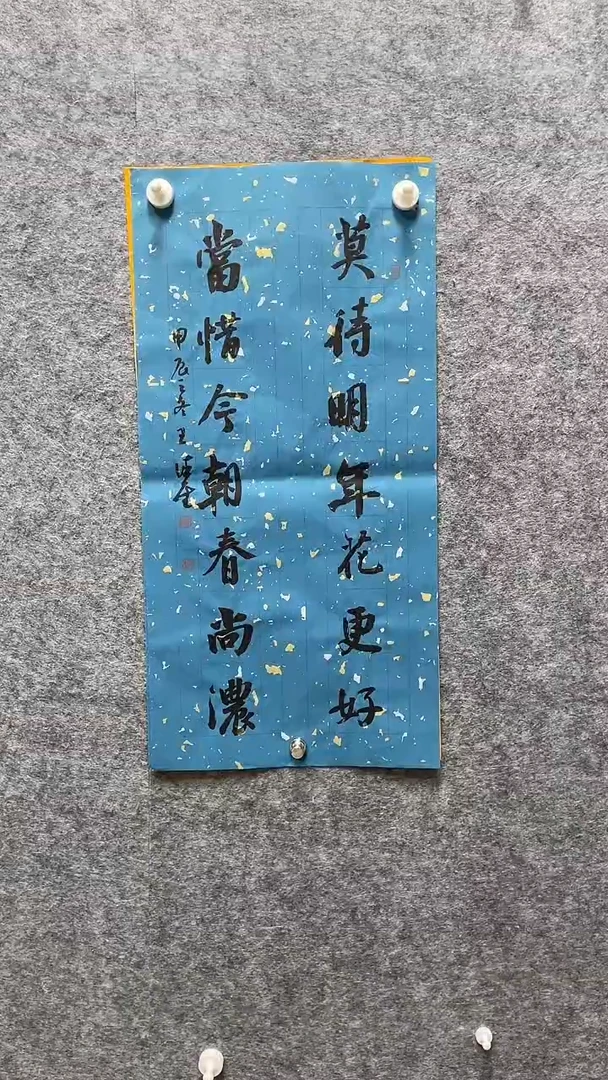 莫待明年花更好
當惜今朝春尚濃
甲辰冬王